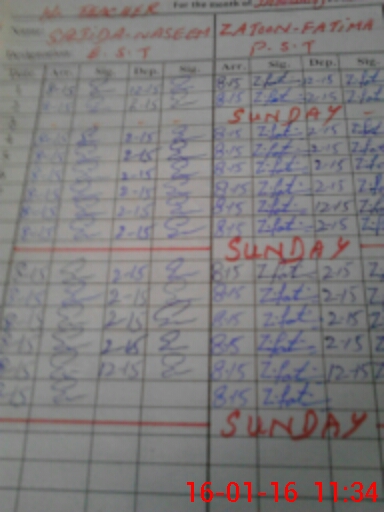 TEACHER For the month of January
Name: SAJIDA-NASEEM ZATOON-FATIMA
Designation: E.S.T P.S.T
Date Arr. Sig. Dep. Sig. Arr. Sig. Dep. Sig.
8-15 12-15 8-15 Z.fat 12-15 Z.fat
8-15 2-15 8-15 Z.fat 2-15 Z.fat
SUNDAY
8-15 2-15 8-15 Z.fat 2-15 Z.fat
8-15 2-15 8-15 Z.fat 2-15 Z.fat
8-15 2-15 8-15 Z.fat 2-15 Z.fat
8-15 2-15 8-15 Z.fat 2-15 Z.fat
8-15 2-15 8-15 Z.fat 12-15 Z.fat
8-15 2-15 8-15 Z.fat 2-15 Z.fat
SUNDAY
8-15 2-15 8-15 Z.fat 2-15 Z
8-15 2-15 8-15 Z.fat 2-15 Z
8-15 2-15 8-15 Z.fat 2-15 Z
8-15 2-15 8-15 Z.fat 2-15 Z
8-15 12-15 8-15 Z.fat 12-15 Z
15 8-15 Z.fat
SUNDAY
16-01-16 11:34